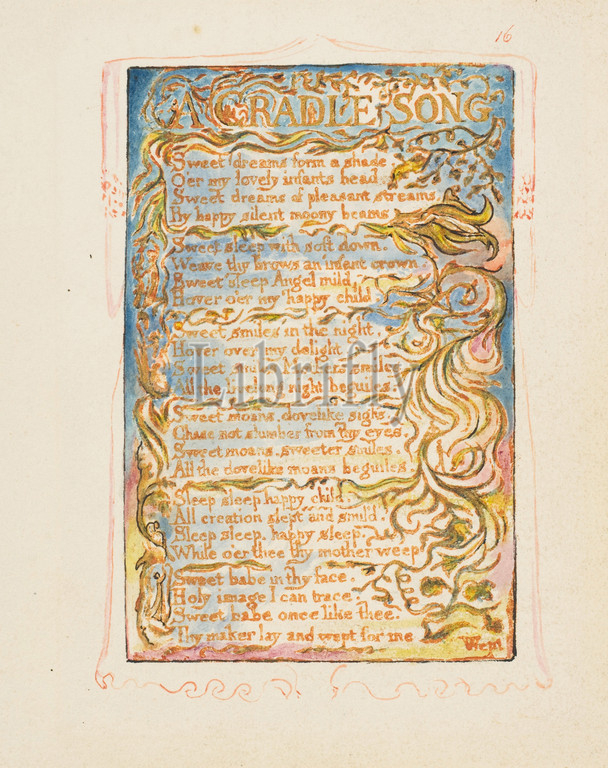 16
A CRADLE SONG
Sweet dreams form a shade
O'er my lovely infants head.
Sweet dreams of pleasant streams,
By happy silent moony beams
Sweet sleep with soft down.
Weave thy brows an infant crown.
Sweet sleep Angel mild,
Hover o'er my happy child.
Sweet smiles in the night,
Hover over my delight.
Sweet smiles Mothers smiles
All the livelong night beguiles.
Sweet moans, dovelike sighs,
Chase not slumber from thy eyes,
Sweet moans, sweeter smiles,
All the dovelike moans beguiles.
Sleep sleep happy child.
All creation slept and smil'd.
Sleep sleep, happy sleep,
While o'er thee thy mother weep
Sweet babe in thy face,
Holy image I can trace.
Sweet babe once like thee,
Thy maker lay and wept for me
Wept
Librifly